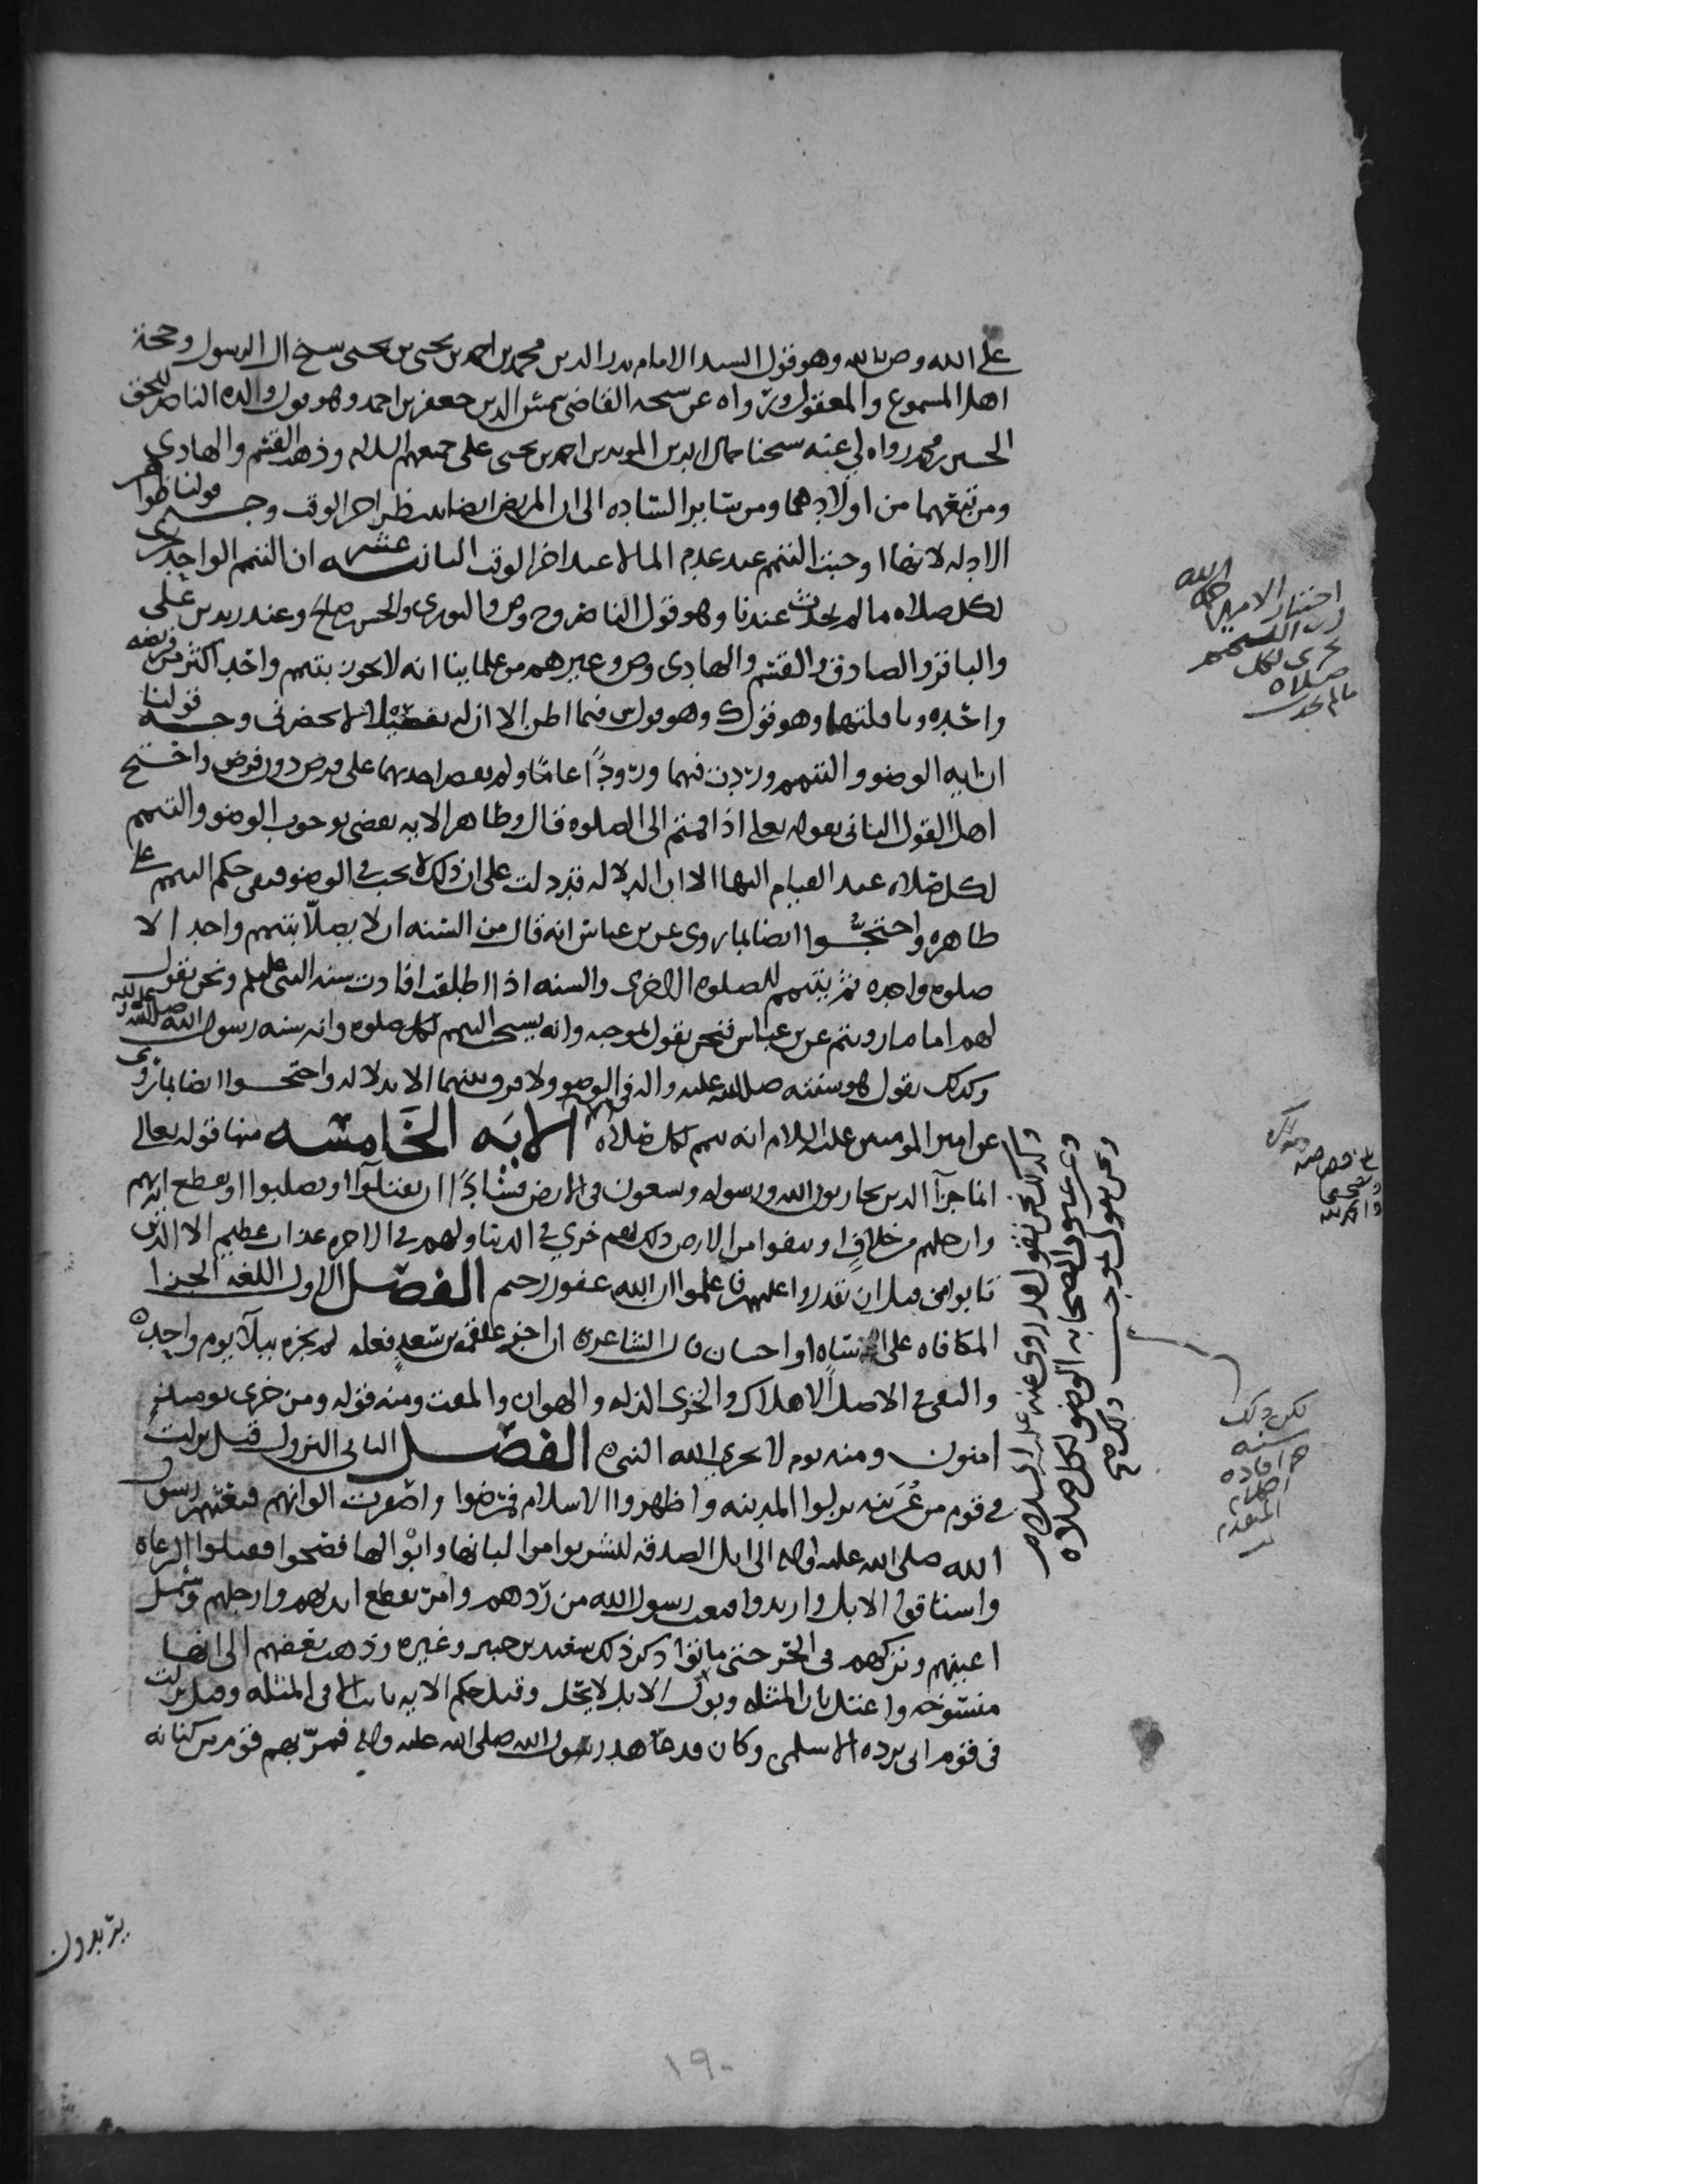 على الله وص بالله وهو قول السيد الامام بدر الدين محمد بن احمد بن يحيى بن يحيى شيخ ال الرسول وحجة
اهل المسموع والمعقول ورواه عن شيخه القاضي شمس الدين جعفر بن احمد وهو قول والده الناصر للحق
الحسين بن محمد رواه لي عنه شيخنا جمال الدين المويد بن احمد بن يحيى على جميعهم السلام وذهب القسم والهادي
ومن تبعهما من اولادهما ومن سائر الساده الى ان المريض ايضا ينتظر اخر الوقت وجه قولنا ظواهر
الادله لانها اوجبت التيمم عند عدم الماء لا عند اخر الوقت الثانيه عشره ان التيمم الواحد يجزي
لكل صلاه ما لم يحدث عندنا وهو قول الناصر وح وص والثوري والحسن بن صالح وعند زيد بن علي
والباقر والصادق والقسم والهادي وص وغيرهم من علماينا انه لا يجوز بتيمم واحد اكثر من فريضه
واحده ونافلتها وهو قول ك وهو قول ش فيما اظن الا ان له تفصيلا لا يحضرني وجه قولنا
ان ايه الوضو والتيمم وردت فيهما ورودًا عامًا ولم يقصر احدهما على فرض دون فرض واحتج
اهل القول الثاني بقوله تعالى اذا قمتم الى الصلوه قال وظاهر الايه يقضي بوجوب الوضو والتيمم
لكل صلاه عند القيام اليها الا ان الدلاله قد دلت على ان ذلك لا يجب في الوضو فبقي حكم التيمم على
ظاهره واحتجُّوا ايضا بما روى عن بن عباس انه قال من السنه ان لا يصلّا بتيمم واحد الا
صلوه واحده ثم يتيمم للصلوه الاخرى والسنه اذا اطلقت افادت سنه النبي صلعم ونحن نقول
لهم اما ما رويتم عن بن عباس فنحن نقول بموجبه وانه يستحب التيمم لكل صلوه وانه سنه رسول الله صلى الله عليه واله
وكذلك نقول هو سنته صلى الله عليه واله في الوضو ولا فرق بينهما الا بدلاله واحتجوا ايضا بما روي
عن امير المومنين عليه السلام انه تيمم لكل صلاه الايَه الخَامسه منها قوله تعالى
انما جزآ الذين يحاربون الله ورسوله ويسعون في الارض فسادًا ان يقتلوا او يصلبوا او تقطع ايديهم
وارجلهم من خلافٍ او ينفوا من الارض ذلك لهم خزي في الدنيا ولهم في الاخره عذاب عظيم الا الذين
تابوا من قبل ان تقدروا عليهم فاعلموا ان الله غفور رحيم الفصل الاول اللغه الجزا
المكافاه على اساه او احسان قال الشاعر ان اجز علقمه بن سعدٍ فعله لم يجزه ببلآ يوم واحده
والنفي في الاصل الاهلاك والخزي الذله والهوان والمقت ومنه قوله ومن خزي يوميذ
امنون ومنه يوم لا يخزي الله النبي الفصل الثاني النزول قيل نزلت
في قوم من عُرَينه نزلوا المدينه واظهروا الاسلام فمرضوا واصفرت الوانهم فبعثهم رسول
الله صلى الله عليه واله الى ابل الصدقه ليشربوا من البانها وابوالها فصحوا فقتلوا الرعاه
واستاقوا الابل وارتدوا فبعث رسول الله من ردهم وامر بقطع ايديهم وارجلهم وسمل
اعينهم وتركهم في الحر حتى ماتوا ذكر ذلك سعيد بن جبير وغيره وذهب بعضهم الى انها
منسوخه واعتل بان المثله وبول الابل لا يحل وقيل حكم الايه ثابت الا في المثله وقيل نزلت
في قوم ابي برده الاسلمي وكان قد عاهد رسول الله صلى الله عليه واله فمرّ بهم قوم من كنانه
يريدون
اختار الامير
ان التيمم
يجزي لكل
صلاه
ما لم يحدث
قال نحن نقول قد روي عنه عليه السلام
وعن عمر والصحابه الوضو لكل صلاه
ونحن نقول بموجب ذلك صح
لكن ذلك
سنه
افاده
المتقدم
١٩٠